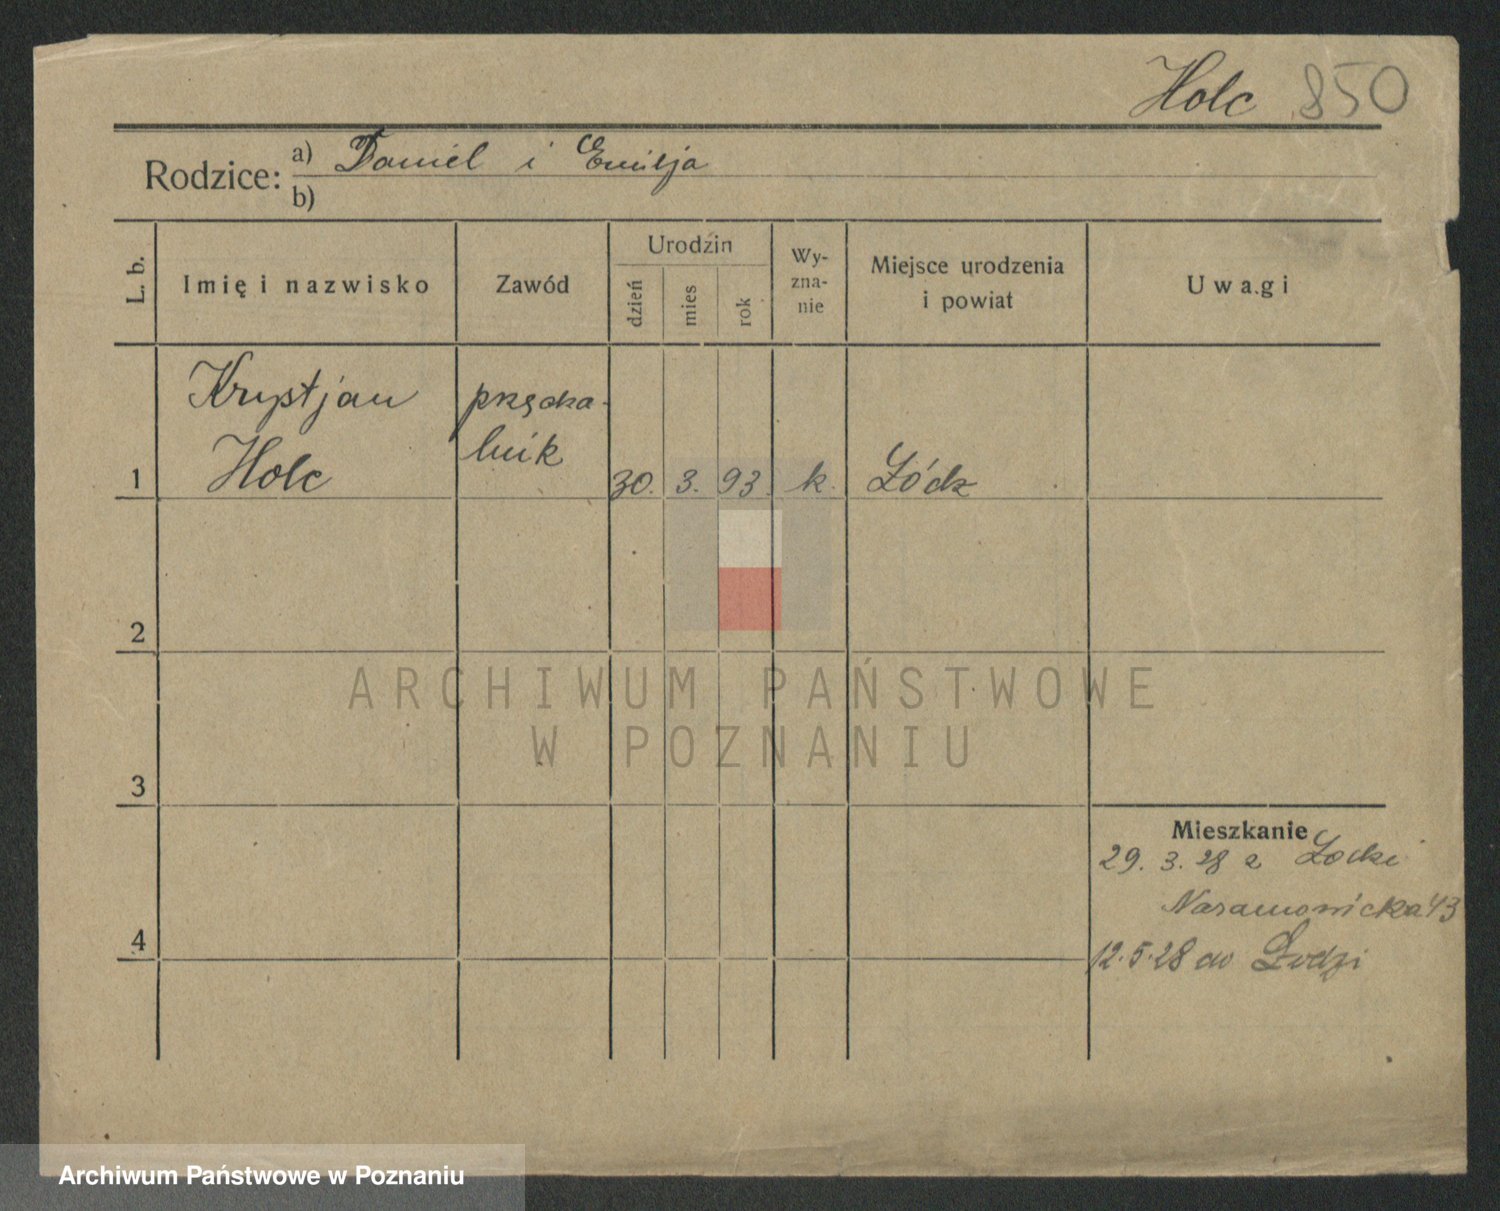 Holc 850
Rodzice: a) Daniel i Emilja
b)
L. b. Imię i nazwisko Zawód Urodzin dzień mies rok Wyznanie Miejsce urodzenia i powiat Uwagi
Krystjan
Holc
przędza-
lnik
1 30. 3. 93. k. Łódz
2
ARCHIWUM PAŃSTWOWE
W POZNANIU
3
Mieszkanie
29. 3. 28 z Łodzi
Naramowicka 43
4
12.5.28 do Łodzi
Archiwum Państwowe w Poznaniu